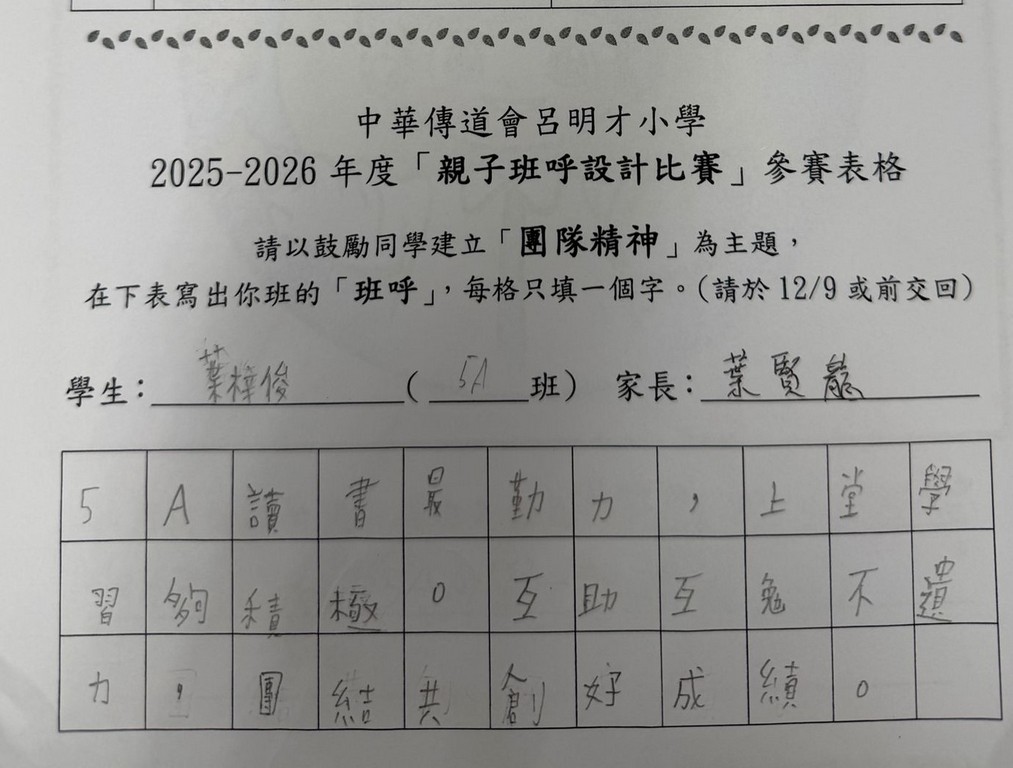 中華傳道會呂明才小學
2025-2026 年度「親子班呼設計比賽」參賽表格
請以鼓勵同學建立「團隊精神」為主題，
在下表寫出你班的「班呼」，每格只填一個字。(請於 12/9 或前交回)
學生：葉樟俊 (5A班) 家長：葉賢龍
5A讀書最勤力，上堂學
習夠積極。互助互勉不遺
力，團結共創好成績。